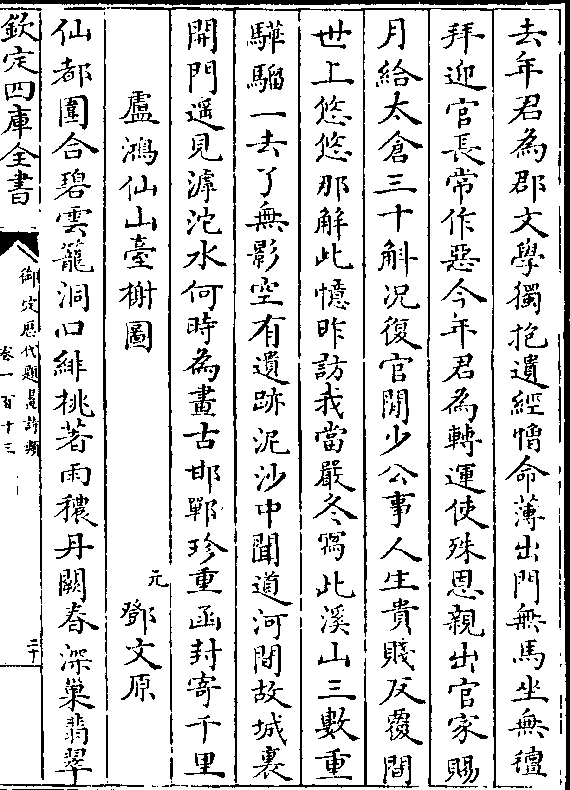 去年君為郡文學獨抱遺經憎命薄出門無馬坐無氊
拜迎官長常作惡今年君為轉運使殊恩親出官家賜
月給太倉三十斛况復官閒少公事人生貴賤反覆間
世上悠悠那解此憶昨訪我當嚴冬寫此溪山三數重
驊騮一去了無影空有遺跡泥沙中聞道河間故城裏
開門遥見滹沱水何時為畫古邯鄲珍重函封寄千里
盧鴻仙山臺榭圖
元 鄧文原
仙都圍合碧雲籠洞口緋桃著雨穠丹闕春深巢翡翠
欽定四庫全書
御定歴代題畫詩類
卷一百十三
二十